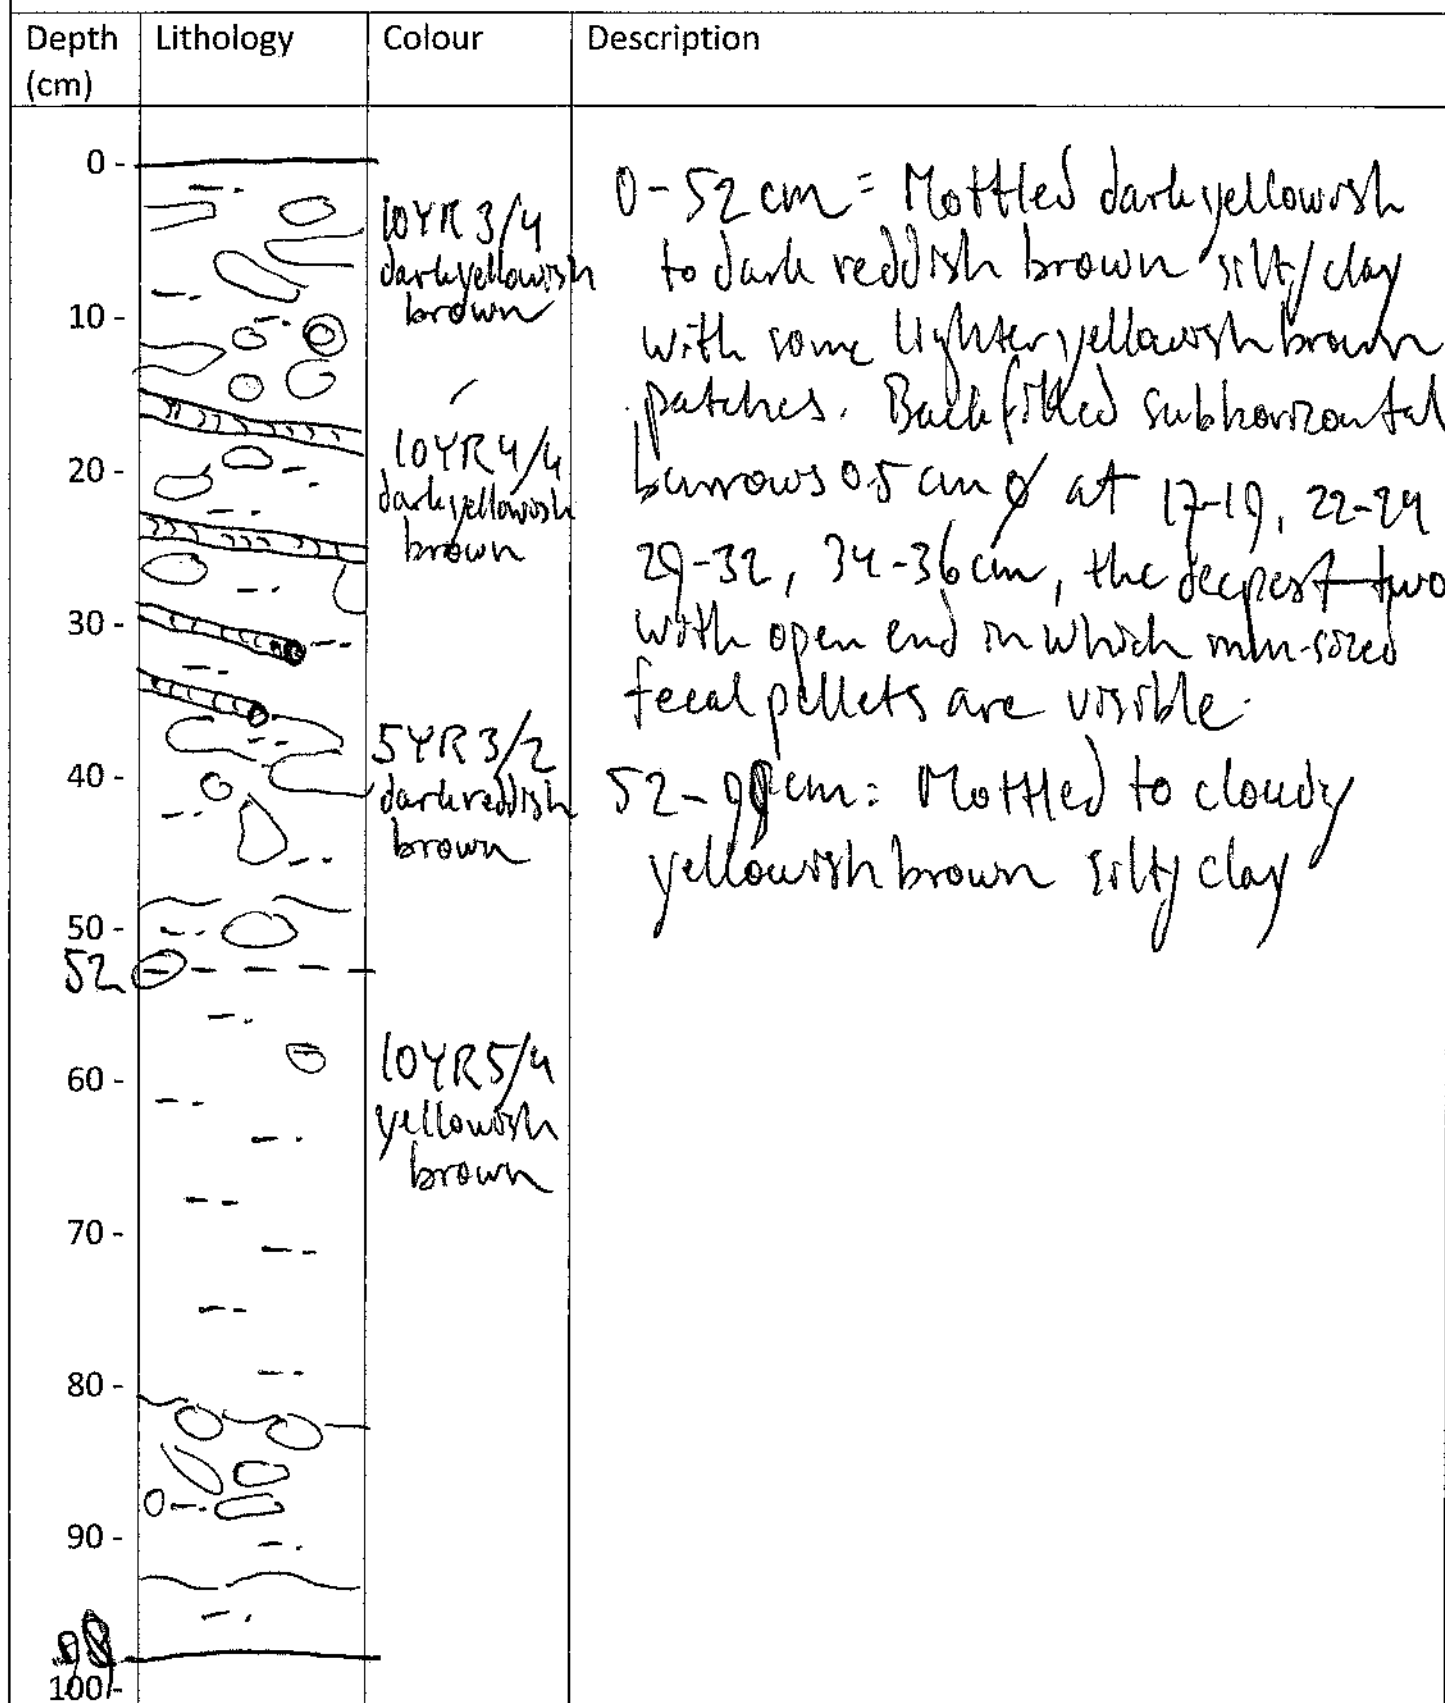 Depth (cm)
Lithology
Colour
Description
0 -
10 -
20 -
30 -
40 -
50 -
52
60 -
70 -
80 -
90 -
98
100 -
10YR 3/4
dark yellowish
brown
10YR 4/4
dark yellowish
brown
5YR 3/2
dark reddish
brown
10YR 5/4
yellowish
brown
0-52 cm = Mottled dark yellowish
to dark reddish brown silty clay
with some lighter yellowish brown
patches. Backfilled subhorizontal
burrows 0.5 cm ø at 17-19, 22-24
29-32, 34-36 cm, the deepest two
with open end in which mm-sized
fecal pellets are visible.
52-98 cm: Mottled to cloudy
yellowish brown silty clay